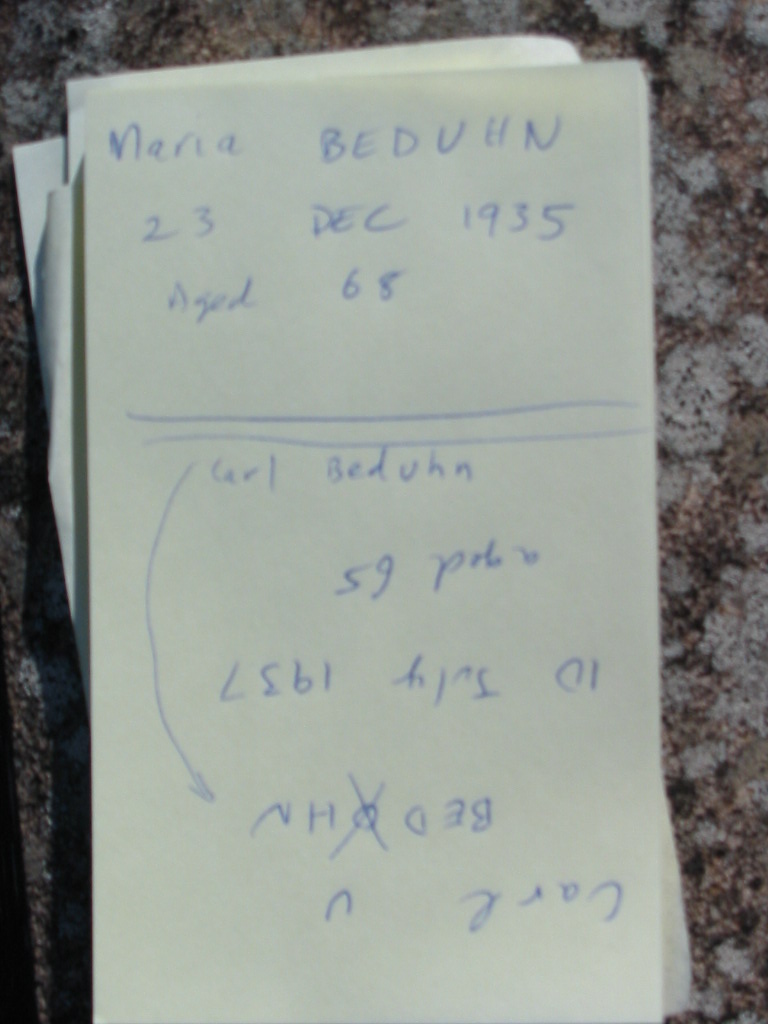 Maria BEDUHN
23 DEC 1935
Aged 68
Carl Beduhn
Carl U
BEDOHN
10 July 1937
aged 65